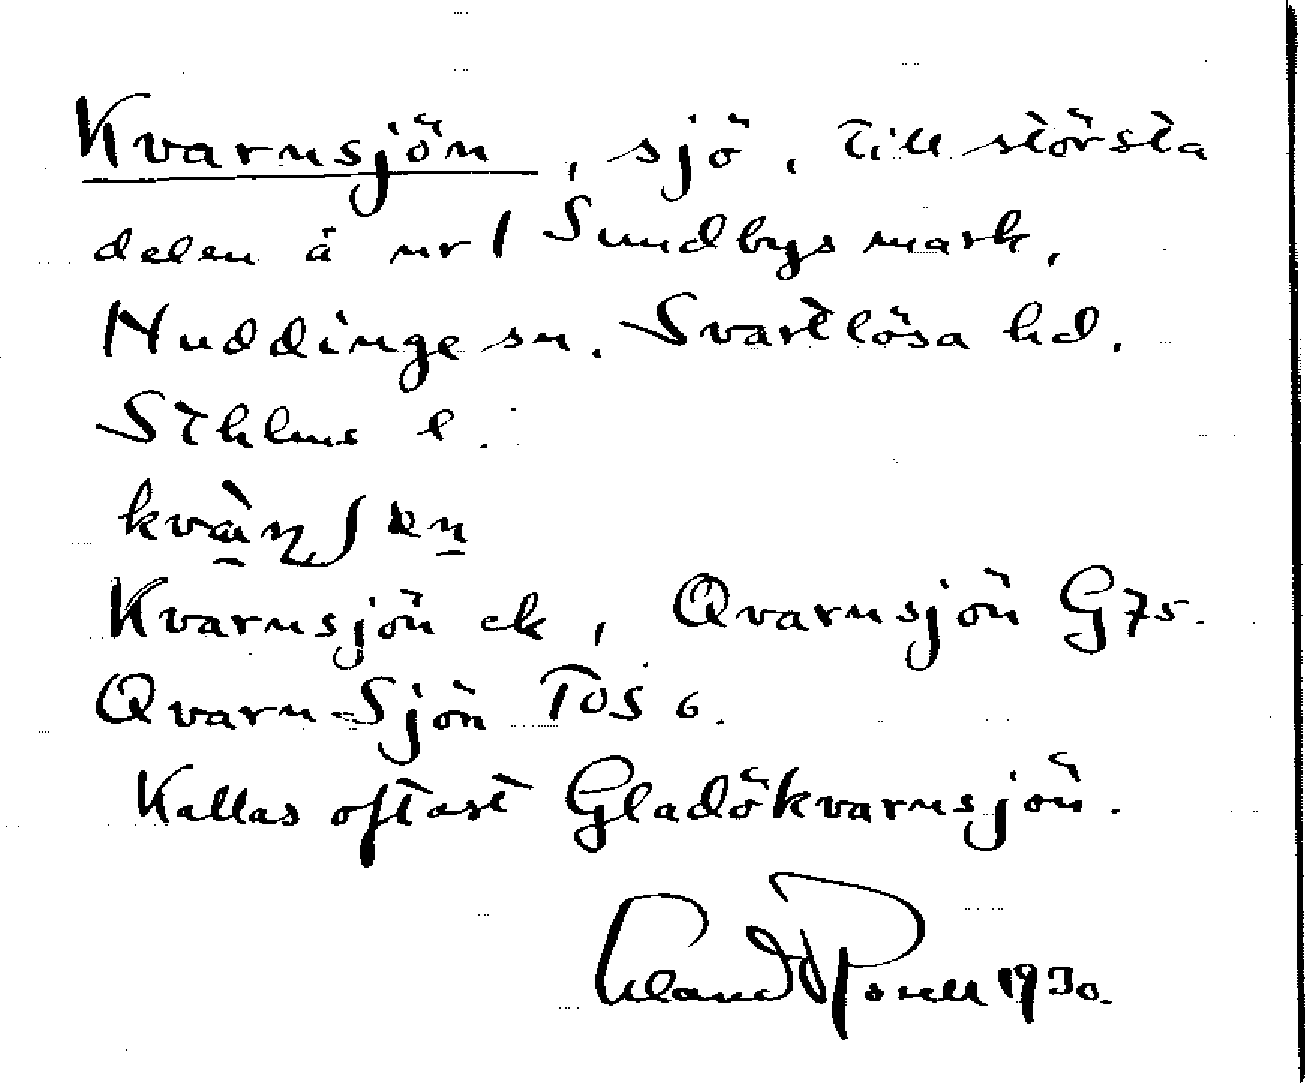 Kvarnsjön, sjö, till största
delen å nr 1 Sundbys mark,
Huddinge sn. Svartlösa hd.
Sthlms l.
kvà̱ɳʃɐn̲
Kvarnsjön ek, Qvarnsjön G75.
Qvarn-Sjön TOS 6.
Kallas oftast Gladökvarnsjön.
1930.